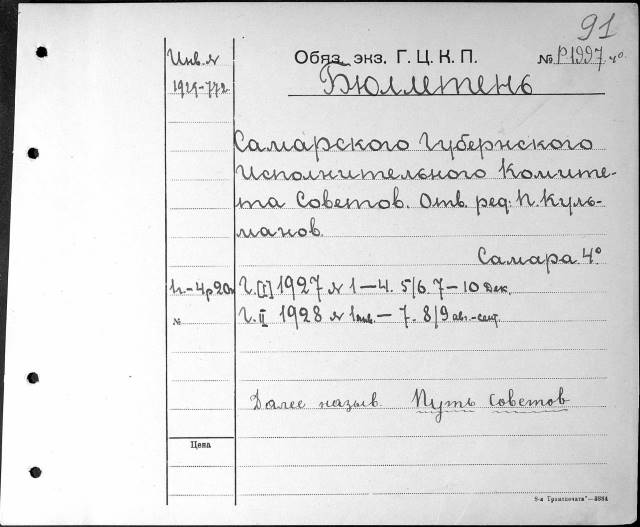 91
Инв. №
Обяз. экз. Г. Ц. К. П.
№ Р1997 4°
1929-772
Бюллетень
Самарского Губернского
Исполнительного Комите-
та Советов. Отв. ред: П. Куль-
манов.
Самара. 4°
Г. [I] 1927 № 1—4. 5/6. 7—10 Дек.
№
Г. II 1928 № 1 янв. — 7. 8/9 авг.-сент.
Далее назыв. Путь Советов
Цена